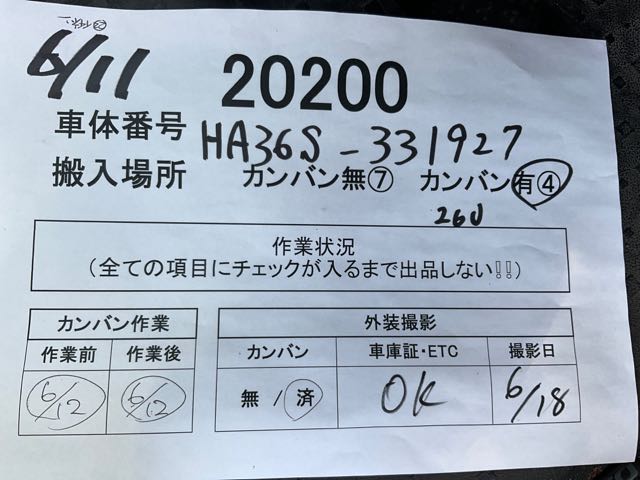 6/11
20200
車体番号 HA36S-331927
搬入場所 カンバン無⑦ カンバン有④
作業状況
(全ての項目にチェックが入るまで出品しない!!)
カンバン作業
作業前 作業後
6/12 6/12
外装撮影
カンバン 車庫証・ETC 撮影日
無 / 済 OK 6/18